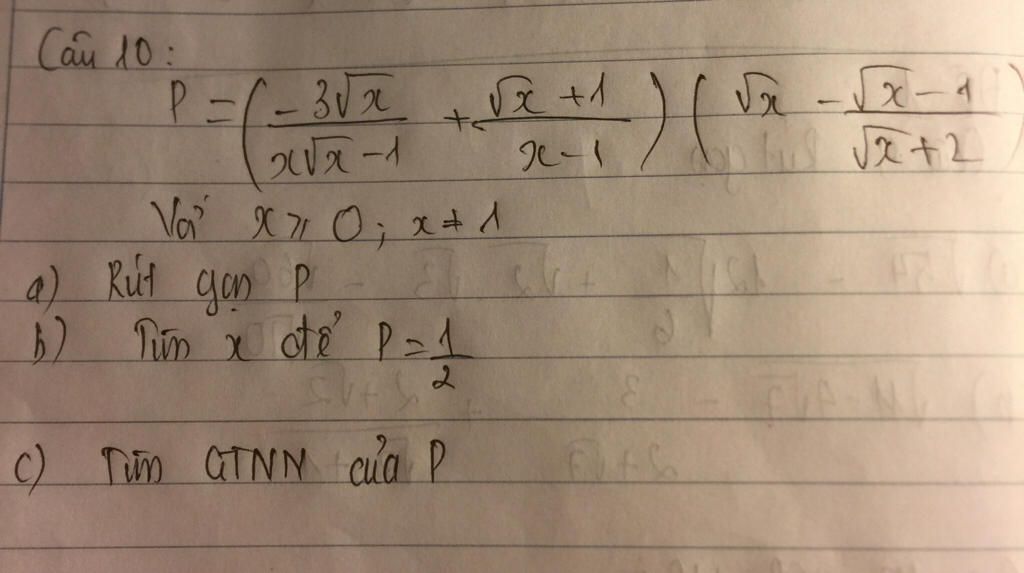 Câu 10:
P = ( -3√x / (x√x - 1) + (√x + 1) / (x - 1) ) ( √x - (√x - 1) / (√x + 2) )
Với x ⩾ 0; x ≠ 1
a) Rút gọn P
b) Tìm x để P = 1/2
c) Tìm GTNN của P